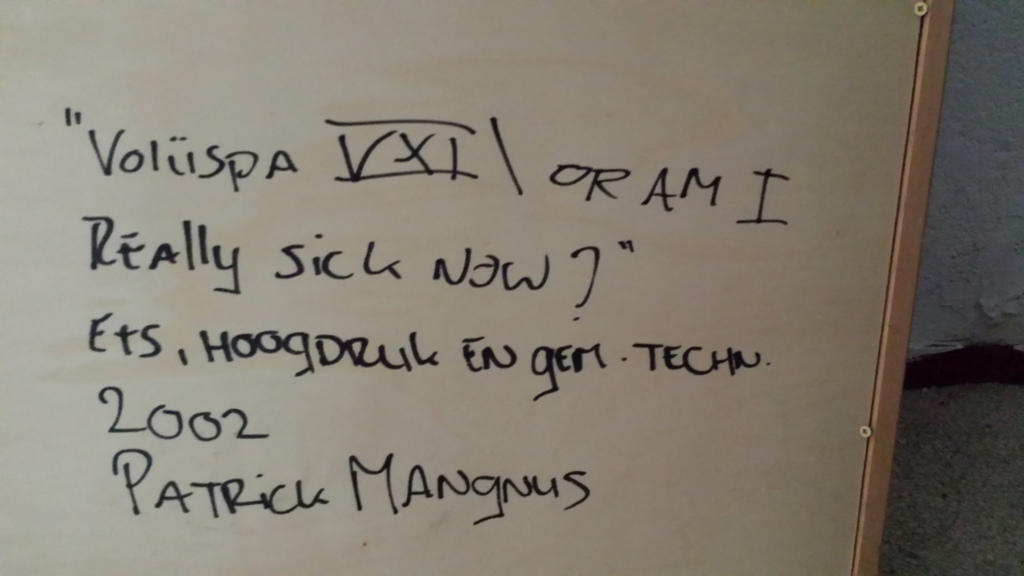 "Volüspa VXI \ OR AM I
Really sick now?"
Ets, Hoogdruk en gem. techn.
2002
Patrick Mangnus